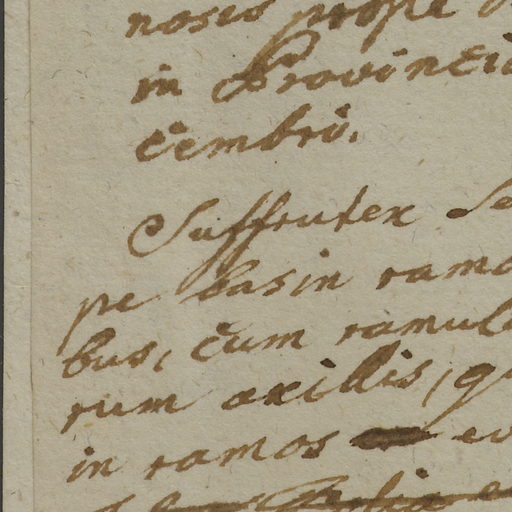 noses prope
in Provinci
cembri.
Suffrutex se
pe basin ramo
bus, cum ramul
rum axillis, q
in ramos